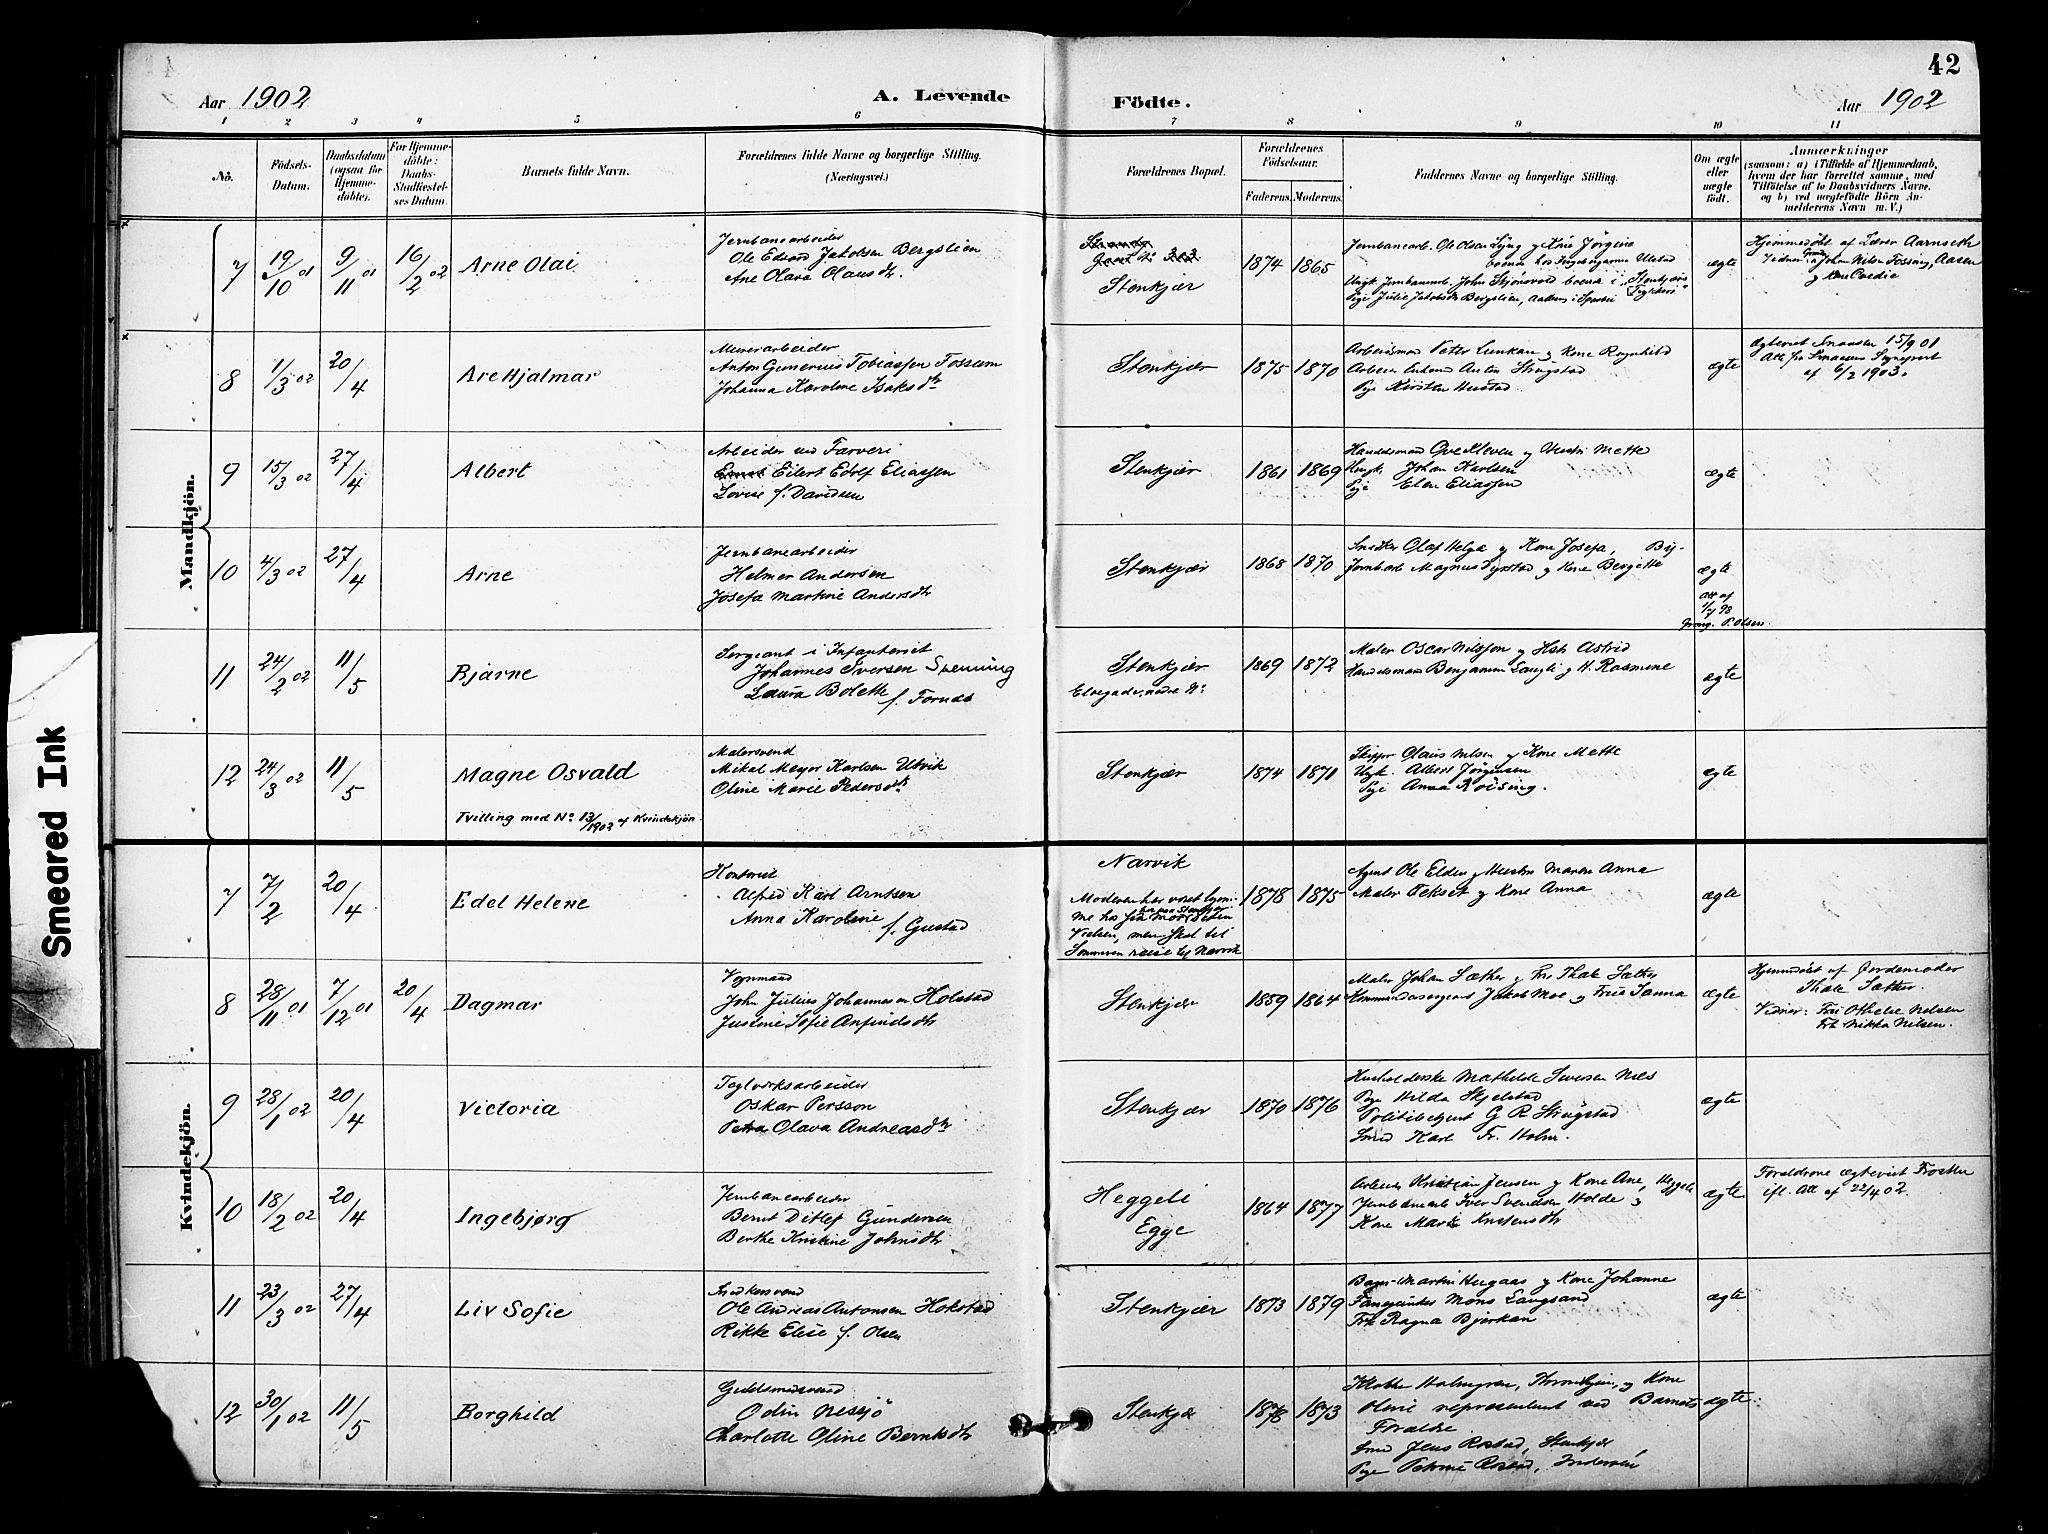 42
Aar 1902
A. Levende
Födte.
Aar 1902
1 2 3 4 5 6 7 8 9 10 11
Nô.
Födsels-
Datum.
Daabsdatum
(ogsaa for
Hjemme-
döbte).
For Hjemme-
döbte:
Daabs-
Stadfæstel-
ses Datum.
Barnets fulde Navn.
Forældrenes fulde Navne og borgerlige Stilling.
(Næringsvei.)
Forældrenes Bopæl.
Forældrenes
Födselsaar.
Faderens.
Moderens.
Faddernes Navne og borgerlige Stilling.
Om ægte
eller
uægte
födt.
Anmærkninger
(saasom: a) i Tilfælde af Hjemmedaab,
hvem der har forrettet samme, med
Tilföielse af to Daabsvidners Navne.
og b) ved uægtefödte Börn An-
melderens Navn m. V.)
Mandkjön.
7
19/10 01
9/11 01
16/2 02
Arne Olai
Jernbanearbeider
Ole Edvard Jakobsen Bergslien
Ane Olava Olausdtr.
Stenkjær
1874
1865
ægte
Hjemmedøbt af Lærer Aarnseth
8
1/3 02
20/4
Are Hjalmar
Murerarbeider
Anton Gunerius Tobiassen Fossum
Johanna Karoline Isaksdtr
Stenkjær
1875
1870
Arbeidsmand Peter Lunkan og Kone Ragnhild
ægte
Ægteviet Snaasen 15/9 01
Att. fra Snaasens Sognepræst
af 6/2 1903.
9
15/3 02
27/4
Albert
Arbeider ved Farveri
Eilert Edolf Eliassen
Lovise f. Davidsen
Stenkjær
1861
1869
Handelsmand Ove Kleven og Hustru Mette
Ungk. Johan Karlsen
Pige Elen Eliassen
ægte
10
4/3 02
27/4
Arne
Jernbanearbeider
Helmer Andersen
Josefa Martine Andersdtr
Stenkjær
1868
1870
Snedker Olaf Helge og Kone Josefa,
Jernbarb. Magnus Dyrstad og Kone Bergitte
ægte
11
24/2 02
11/5
Bjarne
Sergeant i Infanteriet
Johannes Iversen Spenning
Laura Bolette
Stenkjær
Elvegade, nedre No
1869
1872
Maler Oscar Nilsson og Hst. Astrid
Handelsmand Benjamin Langli og H. Rasmine
ægte
12
24/3 02
11/5
Magne Osvald
Tvilling med No 13/1902 af Kvindekjön.
Malersvend
Mikal Meyer Karlsen Utvik
Oline Marie Pedersdtr
Stenkjær
1874
1871
Skipper Olaus Nilsen og Kone Mette
Ungk. Albert Jørgensen
Pige Anna Røising.
ægte
Kvindekjön.
7
7/2
20/4
Edel Helene
Kontorist
Alfred Karl Arntsen
Anna Karoline f. Gustad
Narvik
Vielsen, men skal til
Sommeren reise til Narvik
1878
1875
Agent Ole Elden og Hustru Maren Anna
Maler Tekset og Kone Anna
ægte
8
28/11 01
7/12 01
20/4
Dagmar
Vognmand
John Julius Johannesen Holstad
Justine Sofie Anfindsdtr
Stenkjær
1859
1864
Maler Johan Sæther og Fru Thale Sæther
Kommandersergeant Jakob Moe og Frue Sanna
ægte
Hjemmdøbt af Jordemoder
Thale Sæther.
Vidner: Fru Othelie Nelsen
Frk Nikka Nilsen.
9
28/1 02
20/4
Victoria
Teglværksarbeider
Oskar Persson
Petra Olava Andreasdtr
Stenkjær
1870
1876
Husholderske Mathilde Iversen Næs
Pige Hilda Skjelstad
Politibetjent G R Strugstad
Smed Karl Fr. Holm.
ægte
10
18/2 02
20/4
Ingebjørg
Jernbanearbeider
Bernt Ditlef Gundersen
Berthe Kristine Johnsdtr
Heggeli
Egge
1864
1877
Arbeider Kristian Jensen og Kone Ane, Heggeli
Jernbanearb. Iver Svendsen Holde og
Kone Marit Knutsensdtr
ægte
Forældrene ægteviet Frosten
ifl. Att af 22/4 02.
11
23/3 02
27/4
Liv Sofie
Snedkersvend
Ole Andreas Antonsen Hokstad
Rikke Elise f. Olsen
Stenkjær
1873
1879
Bager Martin Haugaas og Kone Johanne
Fanejunker Mons Langsand
Frk Ragna Bjerkan
ægte
12
30/1 02
11/5
Borghild
Guldsmedsvend
Odin Nessjö
Charlotte Oline Berntsdtr
Stenkjær
1878
1873
Klokker Holmgren, Throndhjem, og Kone
Oline representeret ved Barnets
Forældre
Smed Jens Rostad, Stenkjær
Pige Petrine Rostad, Inderøen
ægte.
Smeared Ink